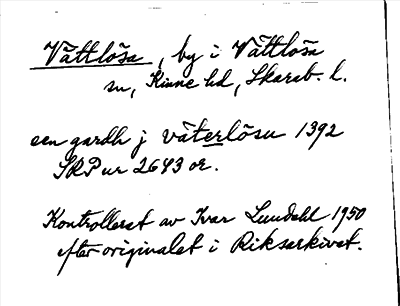 Vättlösa, by i Vättlösa
sn, Kinne hd, Skarab. l.
een gardh j väterlösu 1392
SRP nr 2643 or.
Kontrollerat av Ivar Lundahl 1950
efter originalet i Riksarkivet.